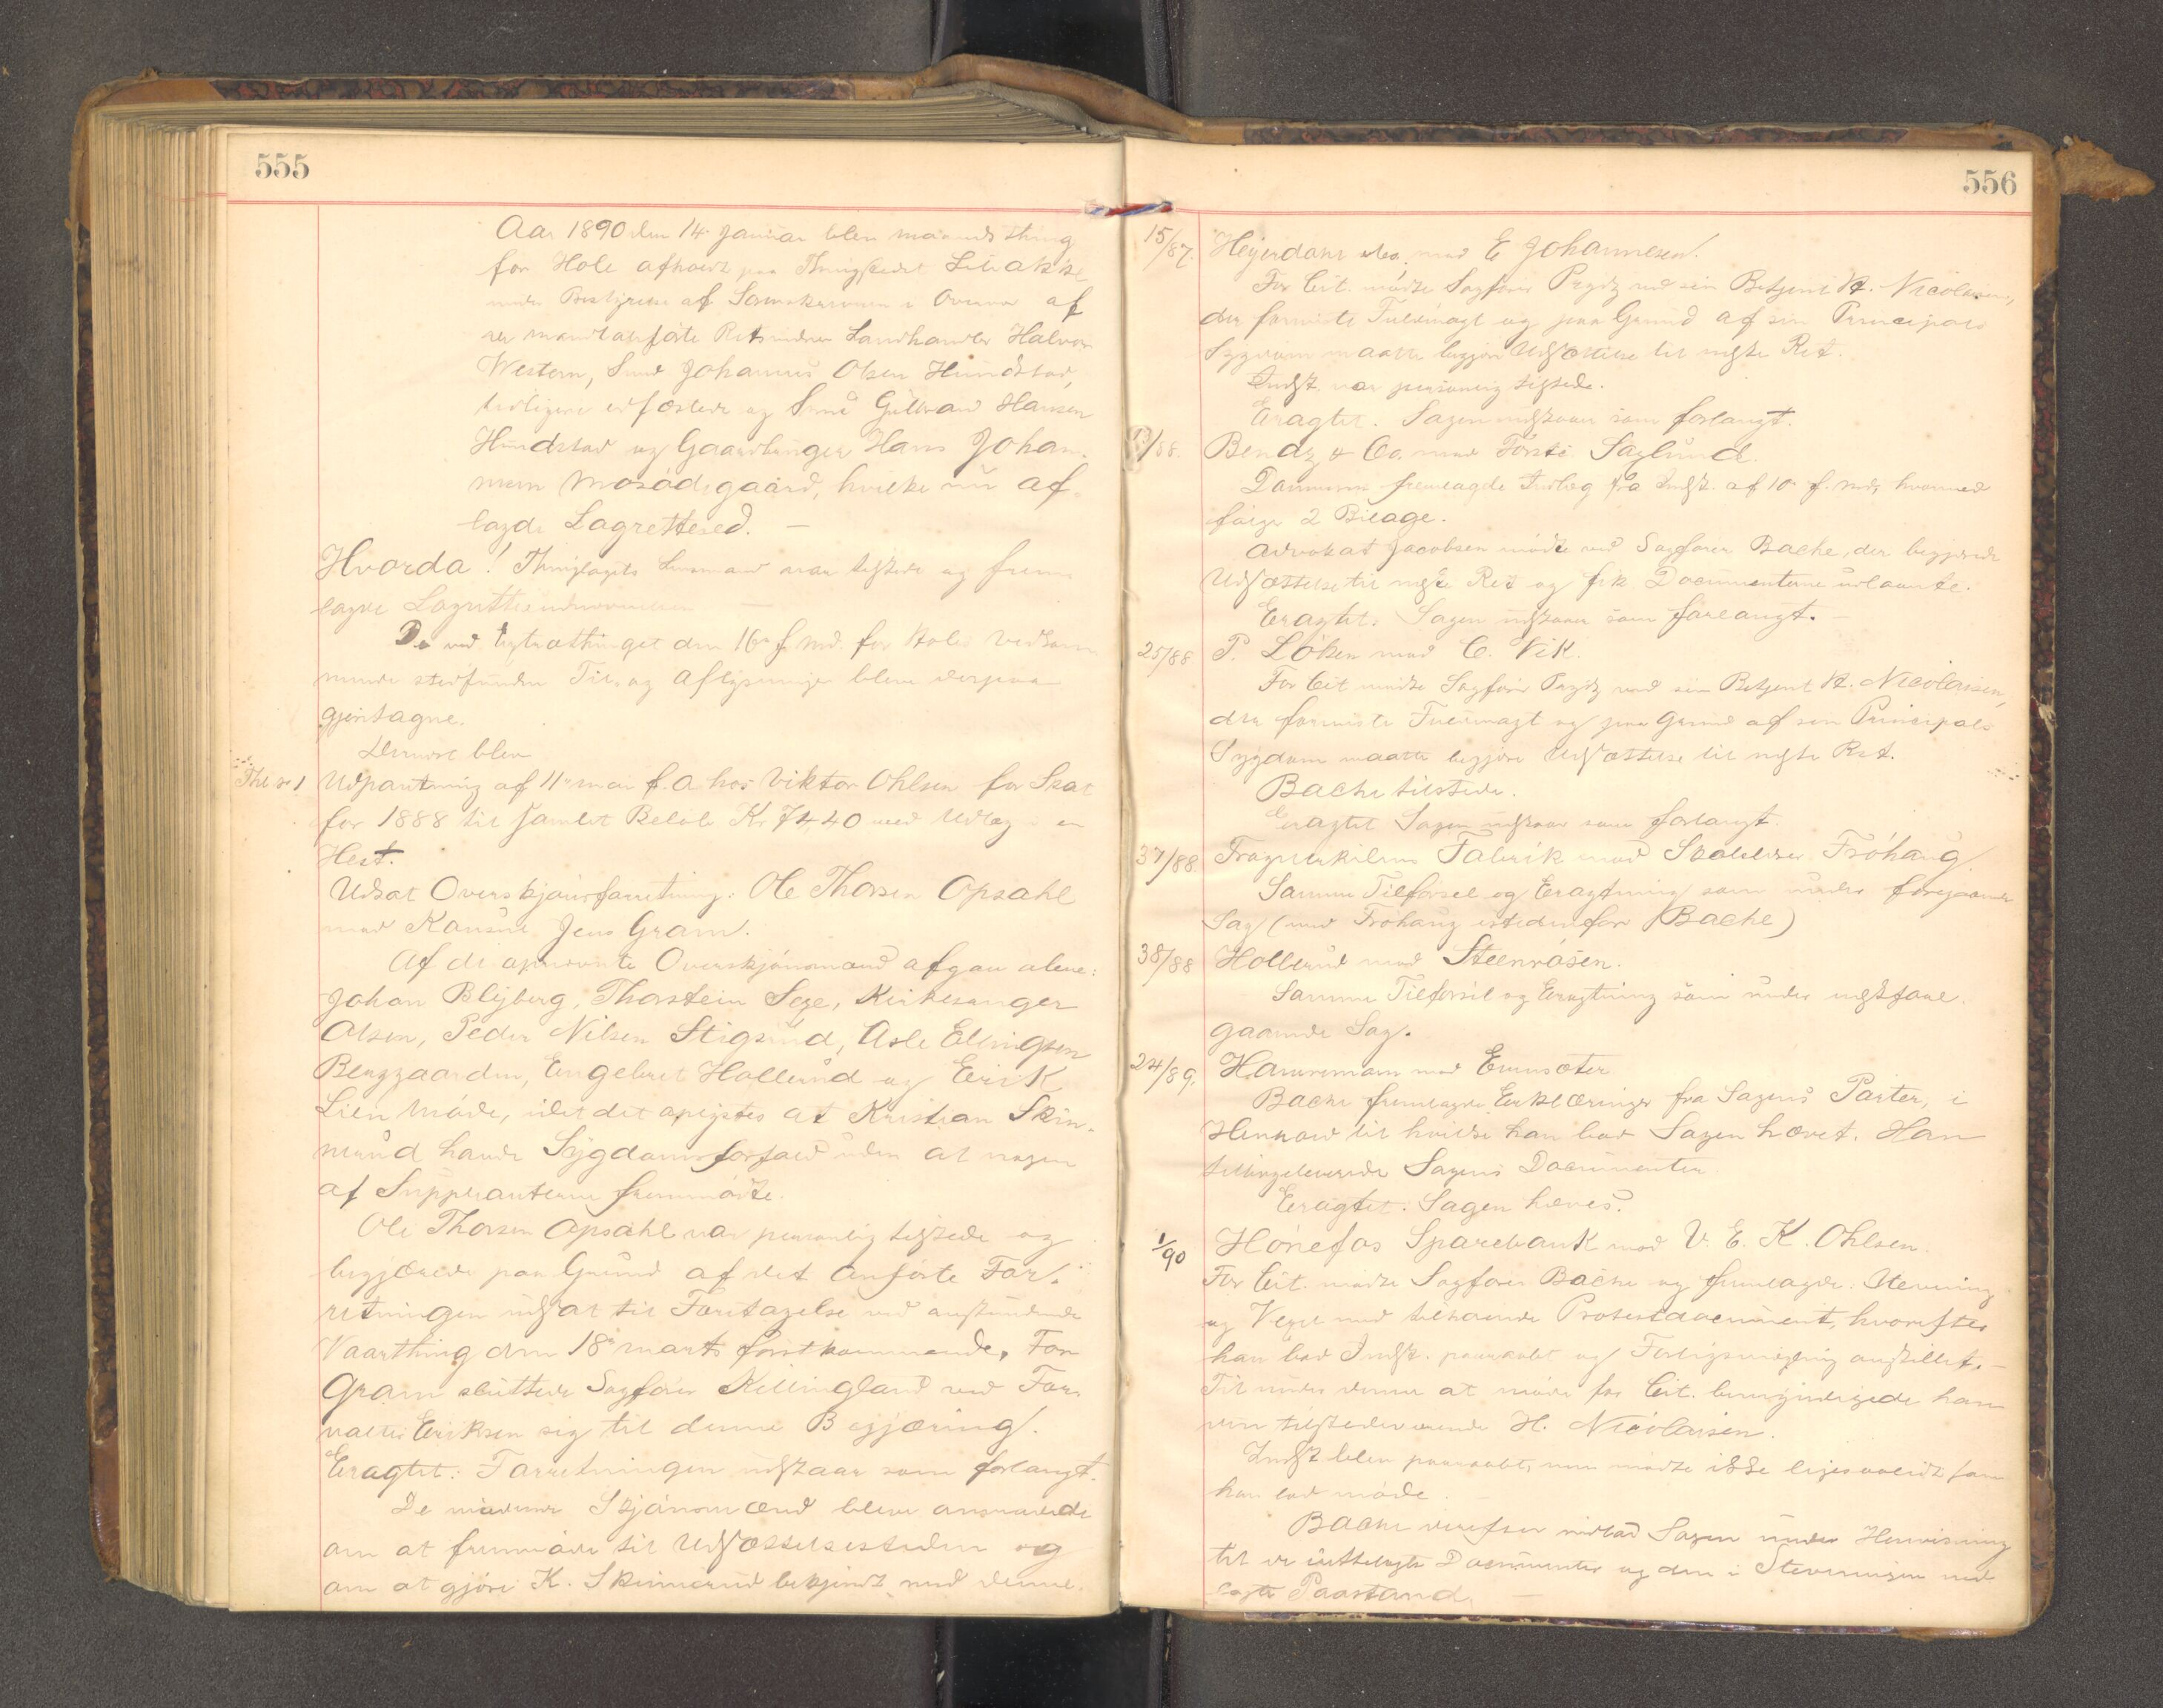 555
Aar 1890 den 14 Januar blev maanedsthing
for Hole afholdt paa Thingstedet Libakke
under Bestyrelse af Sorenskriveren i Overvær af
Retsvidner Landhandler Halvor
Western, Smed Johannes Olsen Hundstad,
tidligere edfæstede og Smed Gulbrand Hansen
Hundstad og Gaardbruger Hans Johan-
nesen Mosødegaard, hvilke nu af-
lagde Lagrettesed. —
Hvorda! Thinglagets Lensmand var tilstede og frem-
lagde Lagrettes
De ved Extrathinget den 16de f. Md. for Hole vedkom-
mende stedfundne Til- og Aflysninger bleve derpaa
gjentagne.
Dernæst blev
Thl No 1 Udpantning af 11te Mai f. A. hos Viktor Ohlsen for Skat
for 1888 til samlet Beløb Kr 74,40 med Udlæg i en
Hest.
Udsat Overskjønsforretning: Ole Thorsen Opsahl
mod Konsul Jens Gram.
Af de opnævnte Overskjønsmænd afgav alene:
Johan Blyberg, Thorstein Sexe, Kirkesanger
Olsen, Peder Nilsen Stigsrud, Asle Ellingsen
Berggaarden, Engebret Hollerud og Erik
Lien Møde, idet det oplystes at Kristian Skin-
nerud havde Sygdomsforfald uden at nogen
af Suppleanterne fremmødte.
Ole Thorsen Opsahl var personlig tilstede og
begjærede paa Grund af det anførte For-
retningen udsat til Foretagelse ved anstundende
Vaarthing den 18de Marts førstkommende. For
Gram sluttede Sagfører Killingland ved For-
valter Eriksen sig til denne Begjæring.
Eragtet: Forretningen udstaar som forlangt.
De mødende Skjønsmænd bleve anmodede
om at fremmøde til Udsættelsestiden og
om at gjøre K. Skinnerud bekjendt med denne.
556
15/87. Heyerdahl mod E Johannesen.
For Cit. mødte Sagfører Prydz ved sin Betjent H. Nicolaisen,
der forviste Fuldmagt og paa Grund af sin Principals
Sygdom maatte begjære Udsættelse til næste Ret.
Indst. var personlig tilstede.
Eragtet. Sagen udstaar som forlangt.
/88. Bendz & Co. modFørsti Saglund.
Dommeren fremlagde Indlæg fra Indst. af 10de f. Md., hvormed
følger 2 Bilage.
Advokat Jacobsen mødte ved Sagfører Bache, der begjærede
Udsættelse til næste Ret og fik Documenterne udlaante.
Eragtet. Sagen udstaar som forlangt. —
25/88 P. Løken mod C. Vik.
For Cit mødte Sagfører Prydz ved sin Betjent H. Nicolaisen,
der forviste Fuldmagt og paa Grund af sin Principals
Sygdom maatte begjære Udsættelse til næste Ret.
Bache tilstede.
Eragtet Sagen udstaar som forlangt.
37/88 Fabrik mod Frøhaug
Samme Tilførsel og Eragtning som under foregaaende
Sag (med Frøhaug istedenfor Bache)
38/88 Hollerud mod Steenrøsen.
Samme Tilførsel og Eragtning som under næstfore-
gaaende Sag.
24/89. Hannemann mod
Bache fremlagde Erklæringer fra Sagens Parter, i
Henhold til hvilke han bad Sagen hævet. Han
tilbageleverede Sagens Documenter.
Eragtet. Sagen hæves.
1/90 Hønefos Sparebank mod V. E. K. Ohlsen.
For Cit. mødte Sagfører Bache og fremlagde: Stevning
og Vexel med tilhørende Protestdocument, hvorefter
han bad Indst. paaraabt og Forligsmægling anstillet. —
Til under denne at møde for Cit. bemyndigede han
den tilstedeværende H. Nicolaisen.
Indst blev paaraabt, men mødte ikke ligesaalidt som
han lod møde. —
Bache derefter indlod Sagen under Henvisning
til de fremlagte Documenter og den i Stevningen ned-
lagte Paastand. —